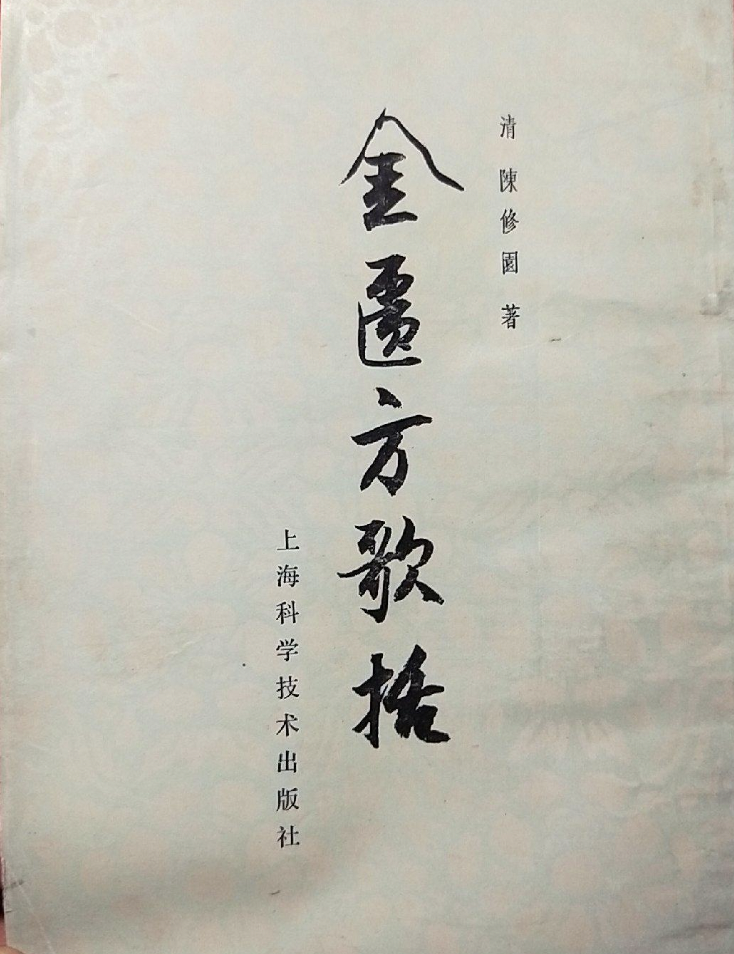 清 陳修園 著
金匱方歌括
上海科学技术出版社